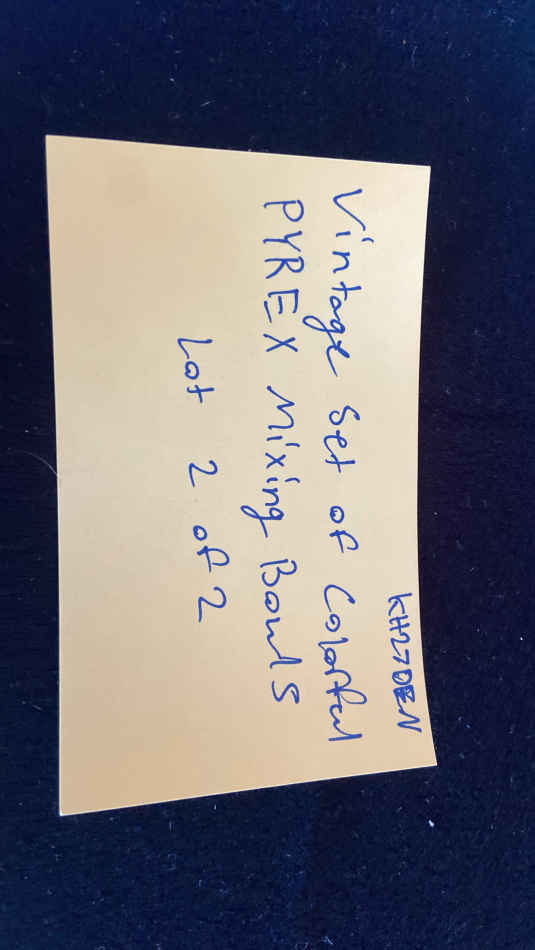 KH27DEN
Vintage Set of Colorful
PYREX Mixing Bowls
Lot 2 of 2